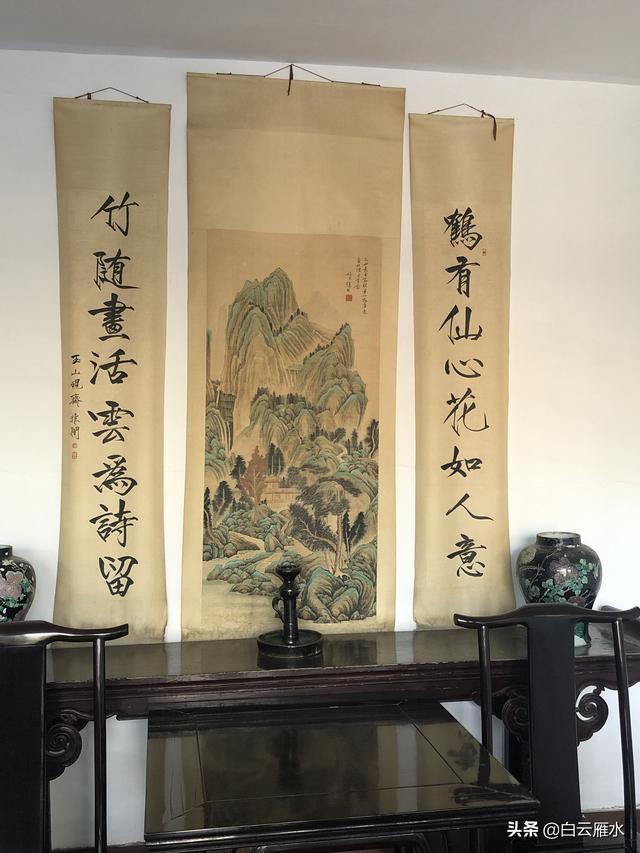 鶴有仙心花如人意
竹随畫活雲為詩留
玉山硯齋非闇
头条 @白云雁水